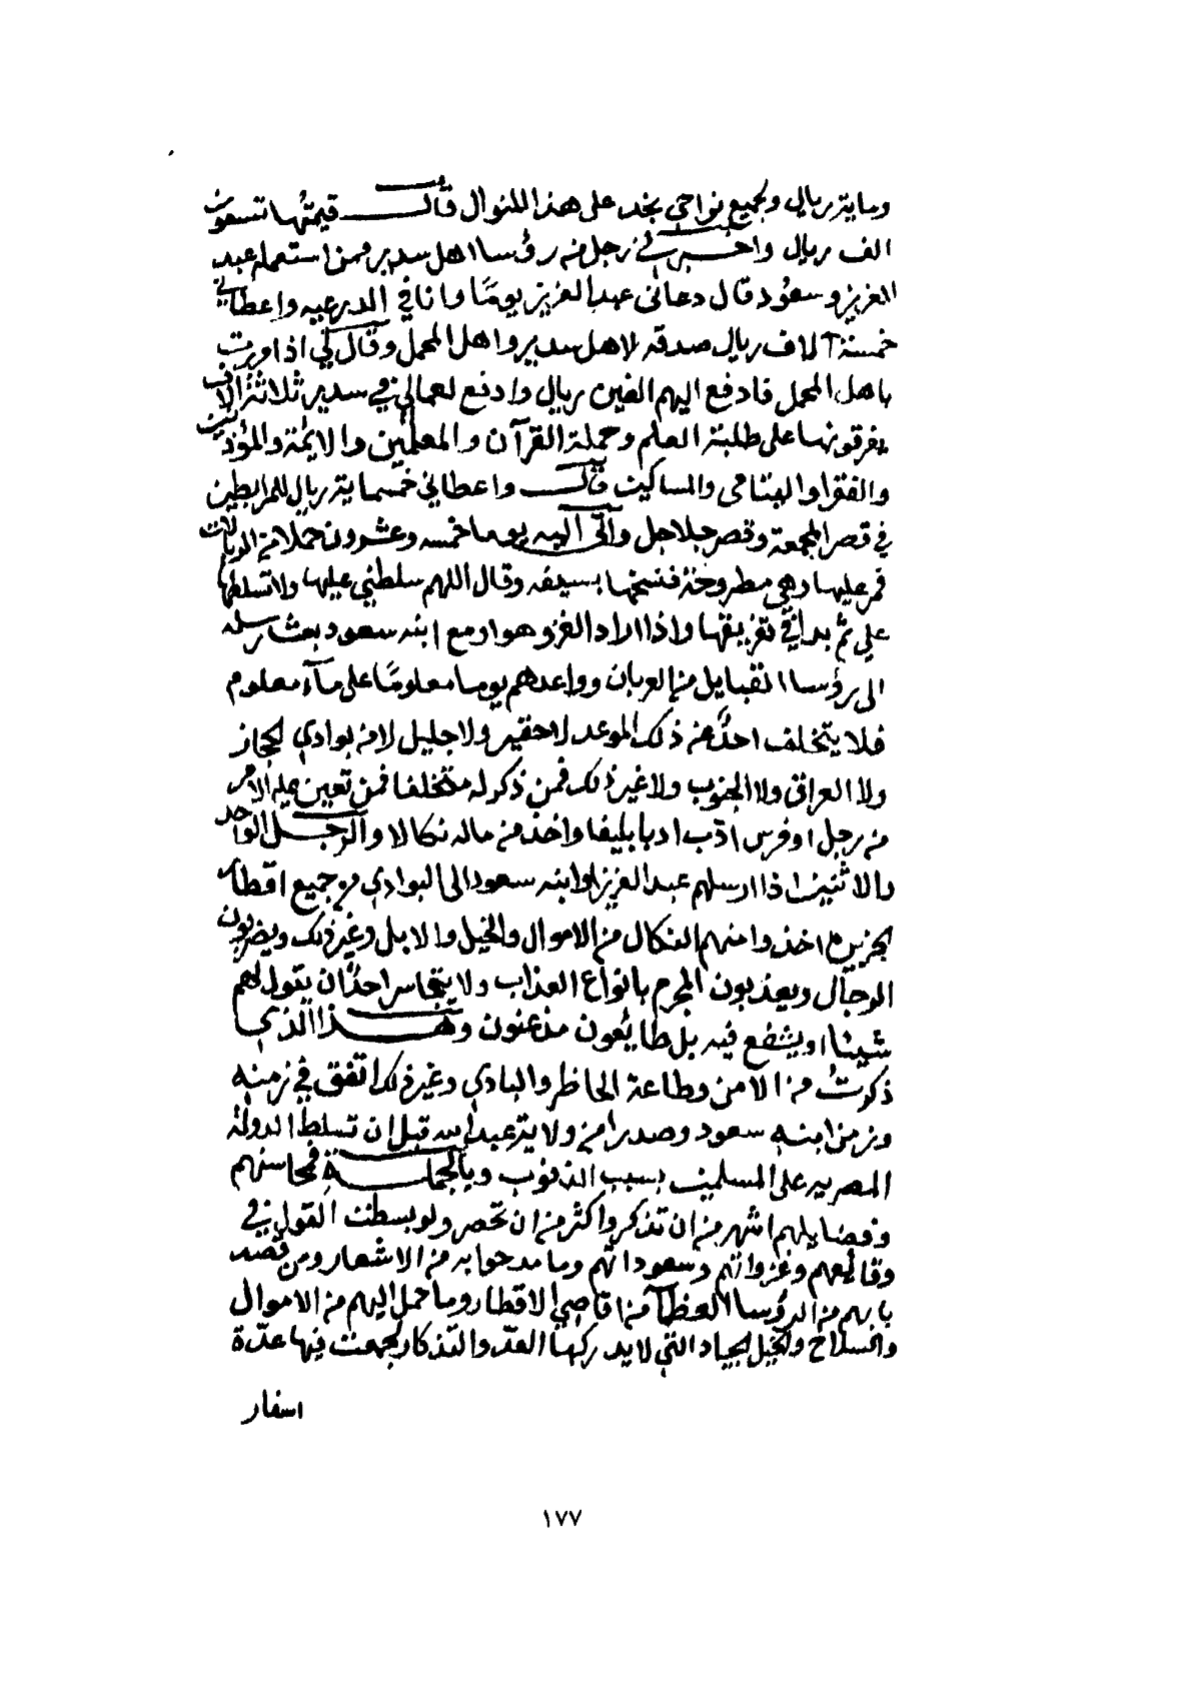 ومايتر ريال ولجميع نواحي نجد على هذا المنوال قال قيمتها تسعون
الف ريال واخبرني رجل من رؤسا اهل سدير فمن استعمله عبد
العزيز وسعود قال دعاني عبد العزيز يومًا وانا في الدرعيه واعطاني
خمسة آلاف ريال صدقه لاهل سدير واهل المحمل وقال لي اذا وردت
باهل المحمل فادفع اليهم الفين ريال وادفع لعمالي في سدير ثلاثة الاف
يفرقونها على طلبة العلم وحملة القرآن والمعلمين والايمة والمؤذنين
والفقرا واليتامى والمساكين قال واعطاني خمسماية ريال للمرابطين
في قصر المجمعة وقصر جلاجل واتى اليه يوما خمسه وعشرون حملا من الريالات
فمر عليها وهي مطروحة فنخها بسيفه وقال اللهم سلطني عليها ولا تسلطها
علي ثم بدا في تفريقها واذا اراد الغزو هوا ومع ابنه سعود بعث رسله
الى رؤسا القبايل من العربان وواعدهم يوما معلومًا على مآء معلوم
فلا يتخلف احدٌ عن ذلك الموعد لا حقير ولا جليل لا من بوادي الحجاز
ولا العراق ولا الجنوب ولا غير ذلك فمن ذكر له متخلفا فمن تعين عليه الامر
من رجل او فرس ادّب ادبا بليغا واخذ من ماله نكالا والرجل الواحد
والاثنين اذا ارسلهم عبد العزيز او ابنه سعود الى البوادي من جميع اقطار
الجزيرة اخذوا منهم النكال من الاموال والخيل والابل وغير ذلك ويضربون
الرجال ويعذبون المجرم بانواع العذاب ولا يتجاسر احدٌ ان يقول لهم
شيئا او يشفع فيه بل طايعون مذعنون وهذا الذي
ذكرتُ من الآمن وطاعة الحاظر والبادي وغير ذلك اتفق في زمنه
وزمن ابنه سعود وصدرا من ولاية عبد الله قبل ان تسلط الدولة
المصريه على المسلمين بسبب الذنوب وبالجملة فمحاسنهم
وفضايلهم اشهر من ان تذكر واكثر من ان تحصر ولو بسطت القول في
وقائعهم وغزواتهم وسعوداتهم وما مدحوا به من الاشعار ومن قصد
بابهم من الرؤسا العظمآ من اقاصي الاقطار وما حمل اليهم من الاموال
والسلاح والخيل الجياد التي لا يدركها العدّ والتذكار لجمعت فيها عدّة
اسفار
١٧٧